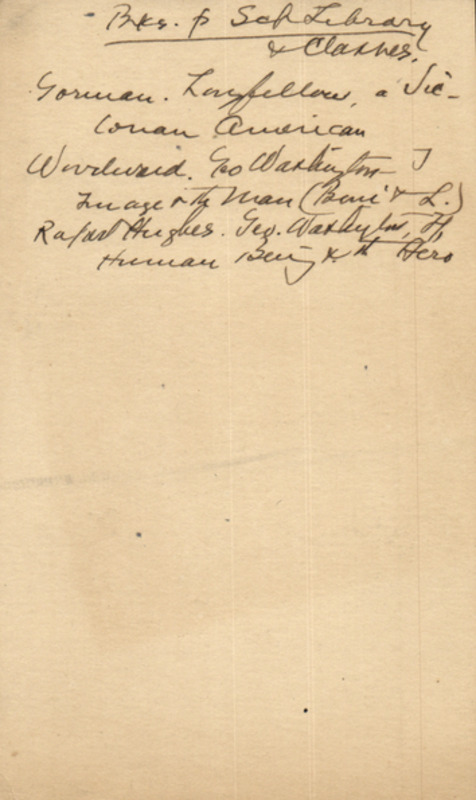 Bks. f Sch Library
& Classes.
Gorman. Longfellow, a Vic-
torian American
Woodward. Geo Washington T
Image & th Man (Boni & L.)
Hughes. Geo. Washington, th
Human Being & th Hero